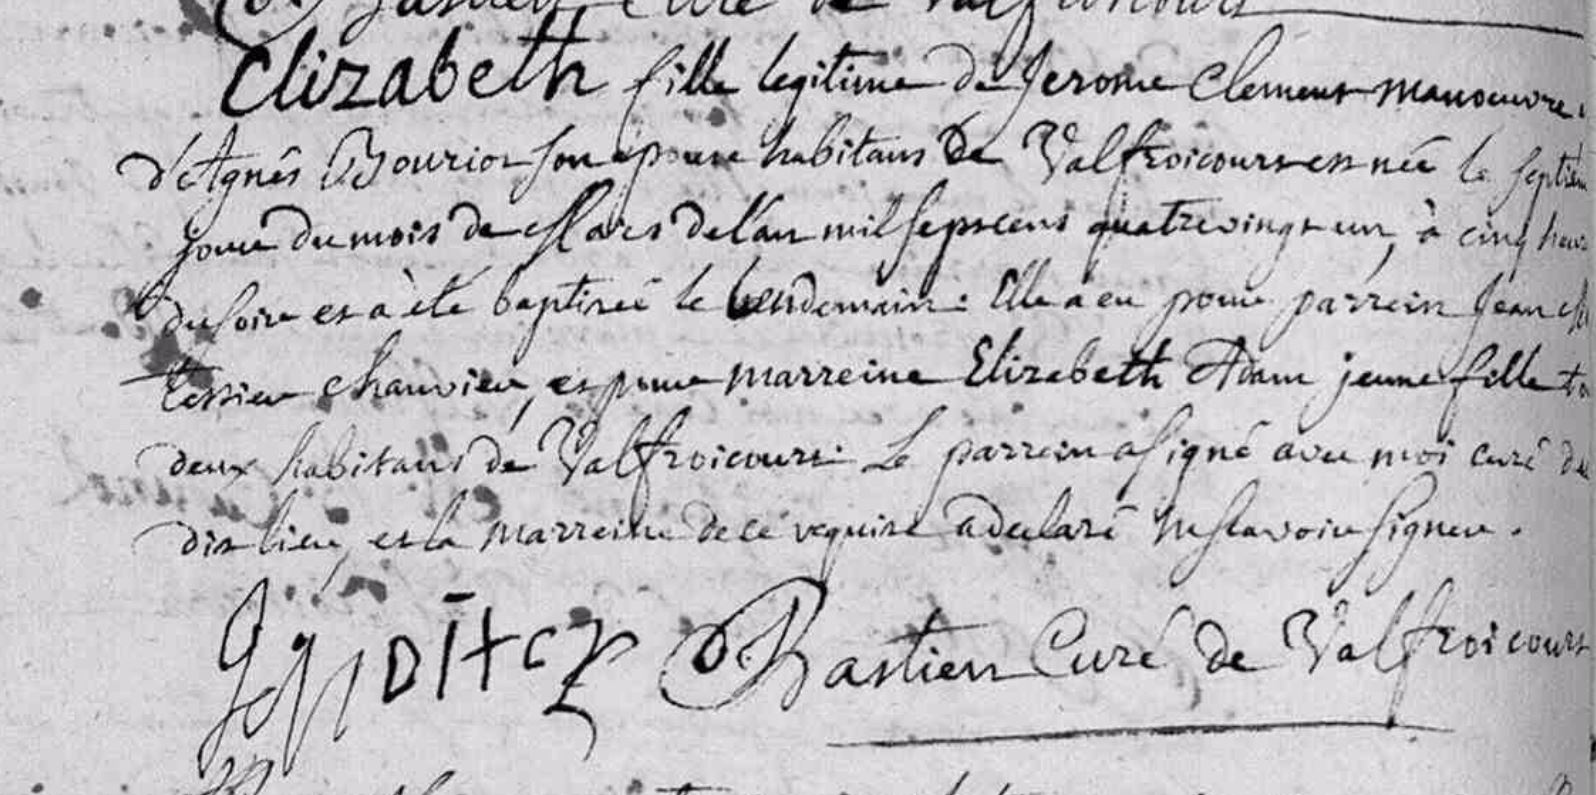 Bastien Curé de Valfroicourt
Elizabeth fille legitime de Jerome Clement manoeuvre
d'Agnés Bouriot son epouse habitans de Valfroicourt est née le septiem
jour du mois de Mars de l'an mil sept cens quatre vingt un, à cinq heur
du soir et à été baptisée le lendemain: Elle a eu pour parrein Jean
tessier chanvier, et pour marreine Elizabeth Adam jeune fille
deux habitans de Valfroicourt: Le parrein a signé avec moi curé du
dit lieu, et la marreine de ce requise a declaré ne sçavoir signer.
Bastien Curé de Valfroicourt